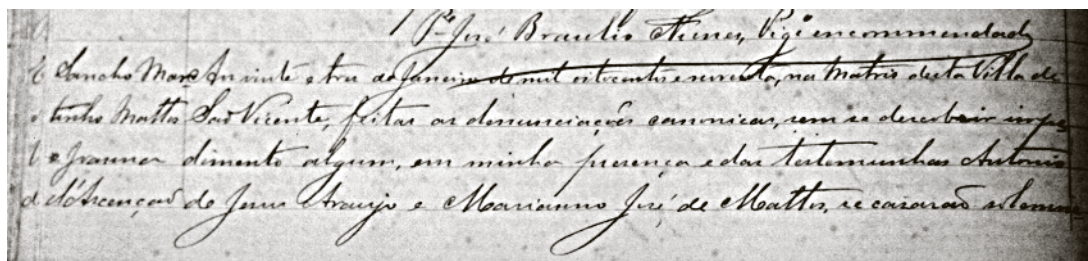 Pe José Braulio Nunes, Vigº encommendado
Sancho Mar Aos vinte e tres de Janeiro de mil oitocentos e noventa, na Matris desta Villa de
tinho Mattos São Vicente, feitas as denunciações canonicas, sem se descobrir impe
e Joanna dimento algum, em minha presença e das testemunhas Antonio
d'Ascenção de Jesus Araujo e Marianno José de Mattos, se casarão solemne